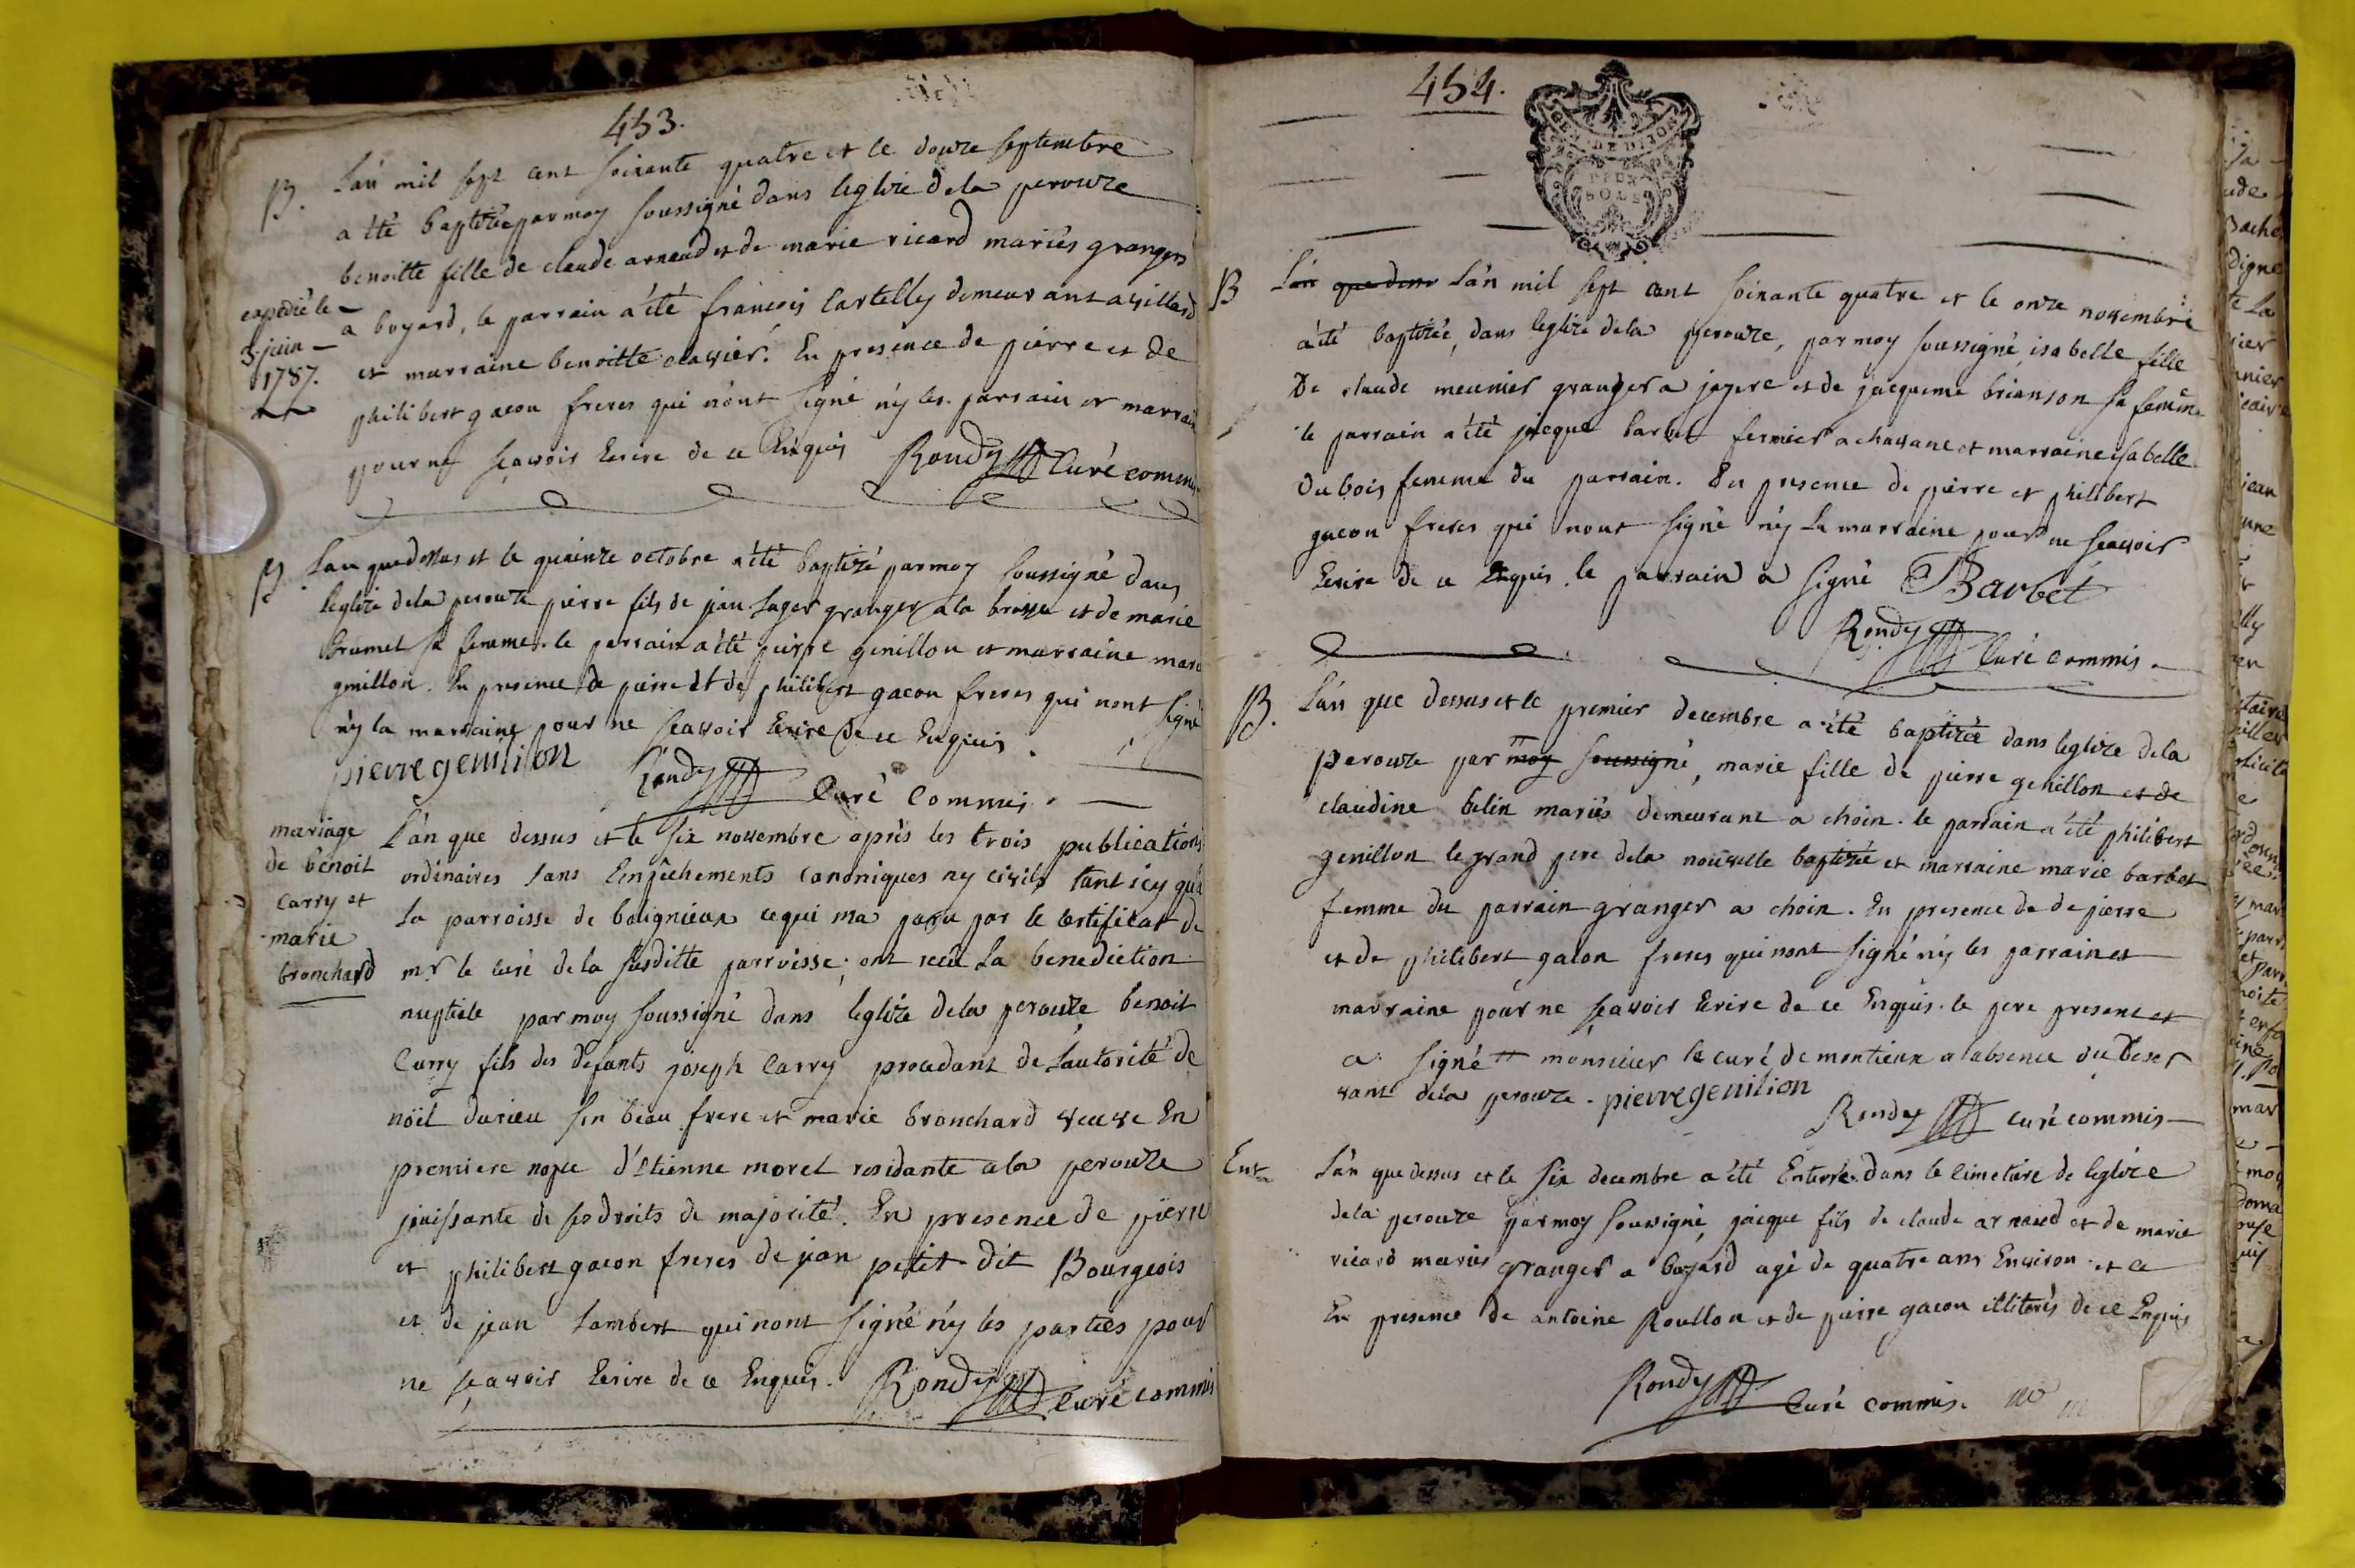 453.
B. L'an mil sept cent soixante quatre et le douze septembre
a été baptizée par moy soussigné dans leglize dela perouze
benoitte fille de claude arnaud et de marie ricard mariés grangers
expedié le
3 juin
1787.
a boyard, le parrain a été francois Cartelly demeurant a villard
et marraine benoitte clavier. En presence de pierre et de
philibert gacon freres qui n'ont signé n'y les parrain et marrain
pour ne sçavoir Ecrire de ce Enquis Rondy Curé commis
B. L'an que dessus et le quinze octobre a été baptizé par moy soussigné dans
leglize dela perouze pierre fils de jean lager granger a la brosse et de marie
brumet sa femme. le parrain a été pierre genillon et marraine marie
genillon. En presence de pierre et de philibert gacon freres qui n'ont signé
n'y la marraine pour ne sçavoir Ecrire de ce Enquis.
pierre genillon Rondy Curé Commis.
mariage
de benoit
carry et
marie
bronchard
L'an que dessus et le six novembre après les trois publications
ordinaires sans Empêchements canoniques ny civils tant icy qu'a
la parroisse de balignieux ce qui ma paru par le certificat de
mr le curé de la susditte parroisse; ont recu la benediction
nuptiale par moy soussigné dans leglize dela perouze benoit
Carry fils des defants joseph Carry procedant de l'autorité de
noël durieu son beau frere et marie bronchard veuve En
premiere nopce d'Etienne morel residante a la perouze
jouissante de ses droits de majorité. En presence de pierre
et philibert gacon freres de jean petit dit Bourgeois
et de jean Lambert qui n'ont signé n'y les parties pour
ne sçavoir Ecrire de ce Enquis. Rondy Curé commis
454.
GEN. DE DIJON
DEUX
SOLS
B L'an que dessus L'an mil sept cent soixante quatre et le onze novembre
a été baptizée, dans leglize dela perouze, par moy soussigné, isabelle fille
De claude meunier granger a jayere et de jacqueme brianson sa femme
le parrain a été jacque barbet fermier a chavane et marraine isabelle
Dubois femme du parrain. En presence de pierre et philibert
gacon freres qui n'ont signé n'y La marraine pour ne sçavoir
Ecrire de ce Enquis le parrain a signé Barbet
Rondy Curé commis.
B. L'an que dessus et le premier decembre a été baptizée dans leglize dela
perouze par moy soussigné, marie fille de pierre genillon et de
claudine belin mariés demeurant a choin. le parrain a été philibert
genillon le grand pere dela nouvelle baptizée et marraine marie barbet
femme du parrain granger a choin. En presence de de pierre
et de philibert gacon freres qui n'ont signé n'y les parrain et
marraine pour ne sçavoir Ecrire de ce Enquis. le pere present et
a signé monsieur le curé de montieux a l'absence du deser
vant dela perouze. pierre genilion
Rondy curé commis
Ent L'an que dessus et le six decembre a été Enterré dans le cimetiere de leglize
dela perouze par moy soussigné, jacque fils de claude arnaud et de marie
ricard mariés granger a boyard agé de quatre ans Environ. et ce
En presence de antoine Roullon et de pierre gacon illiterés de ce Enquis
Rondy Curé commis.